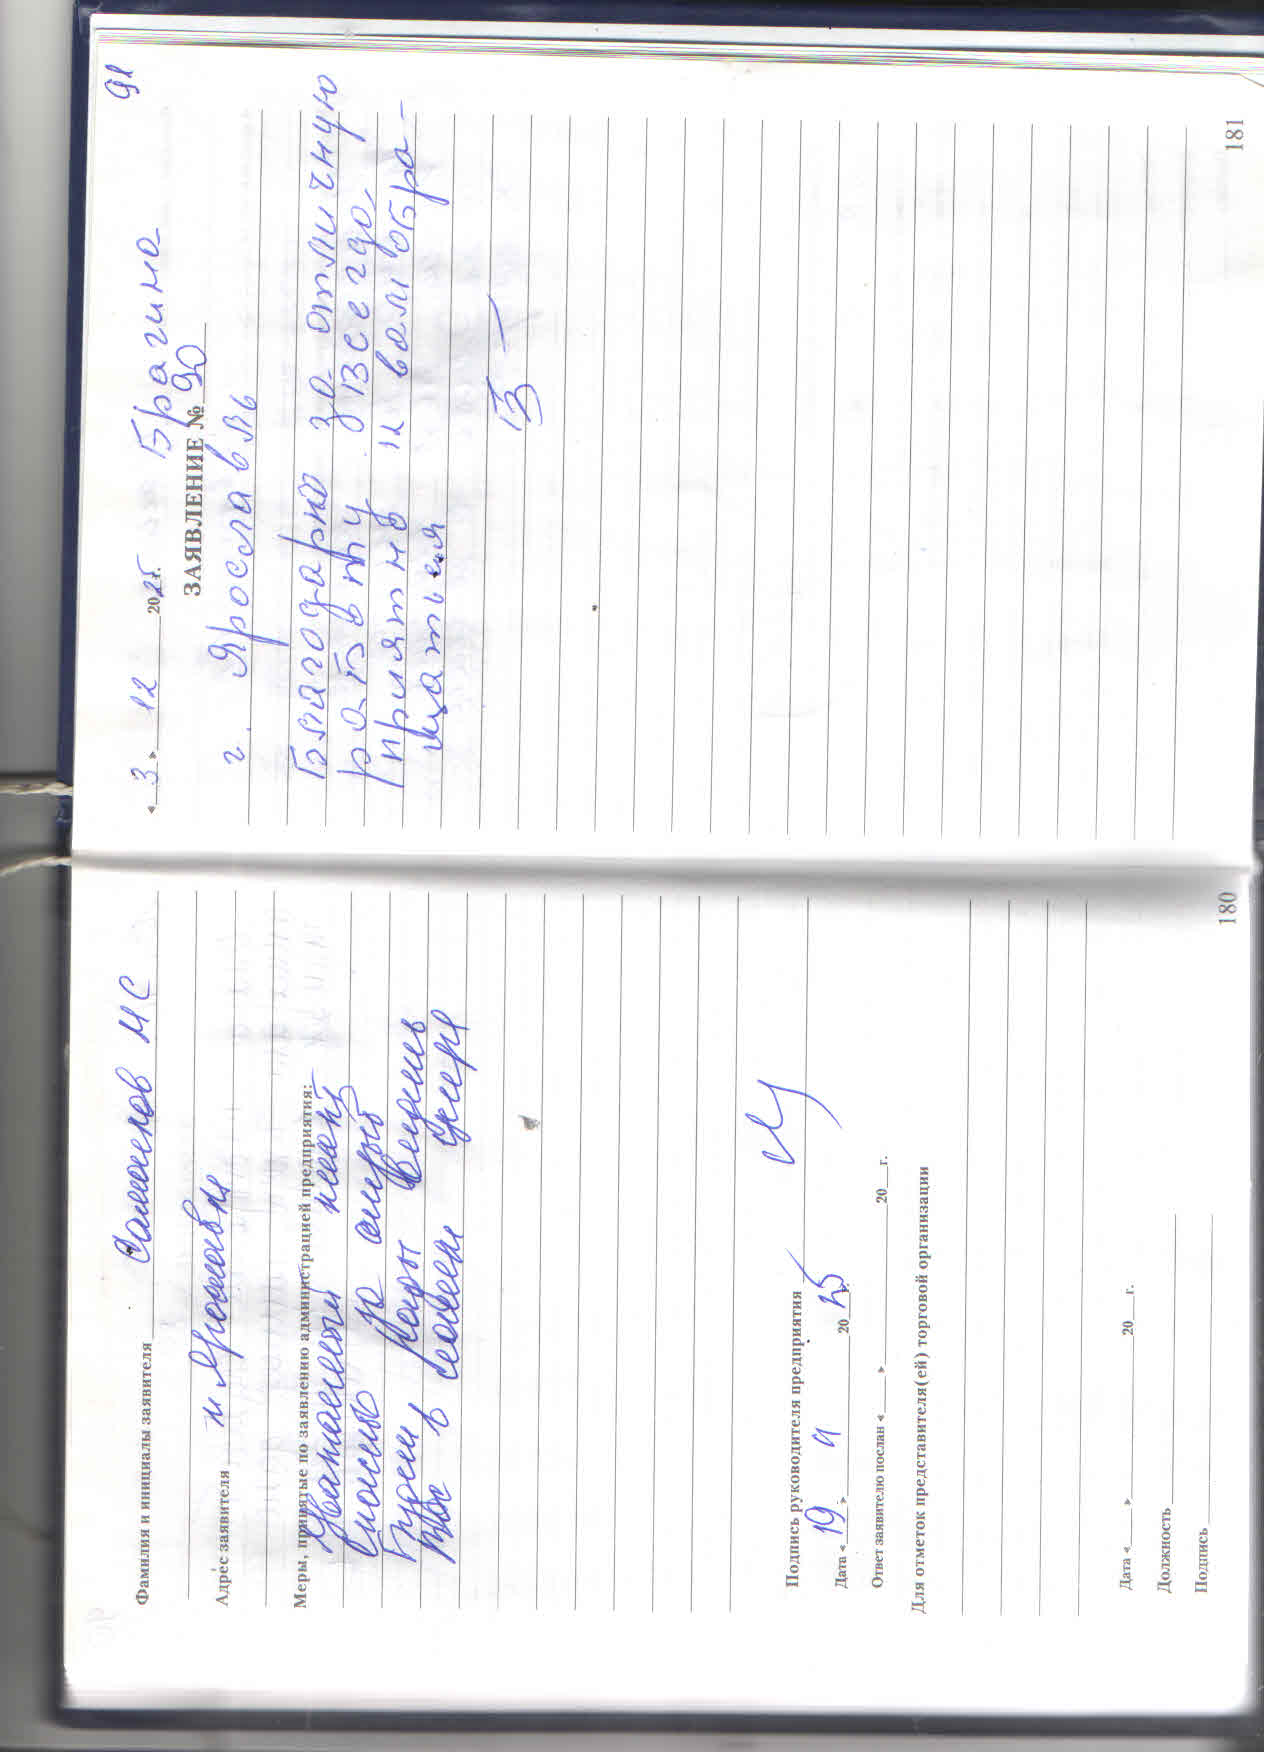 Фамилия и инициалы заявителя Самойлов МС
Адрес заявителя г. Ярославль
Меры, принятые по заявлению администрацией предприятия:
Уважаемый
Спасибо за
Рады видеть
Вас в
Подпись руководителя предприятия
Дата « 19 » 9 2025г.
Ответ заявителю послан « » 20 г.
Для отметок представителя(ей) торговой организации
Дата « » 20 г.
Должность
Подпись
180
91
« 3 » 12 2025г. Брагина
ЗАЯВЛЕНИЕ № 90
г. Ярославль
Благодарю за отличную
работу Всегда
приятно к вам обра-
щаться
181